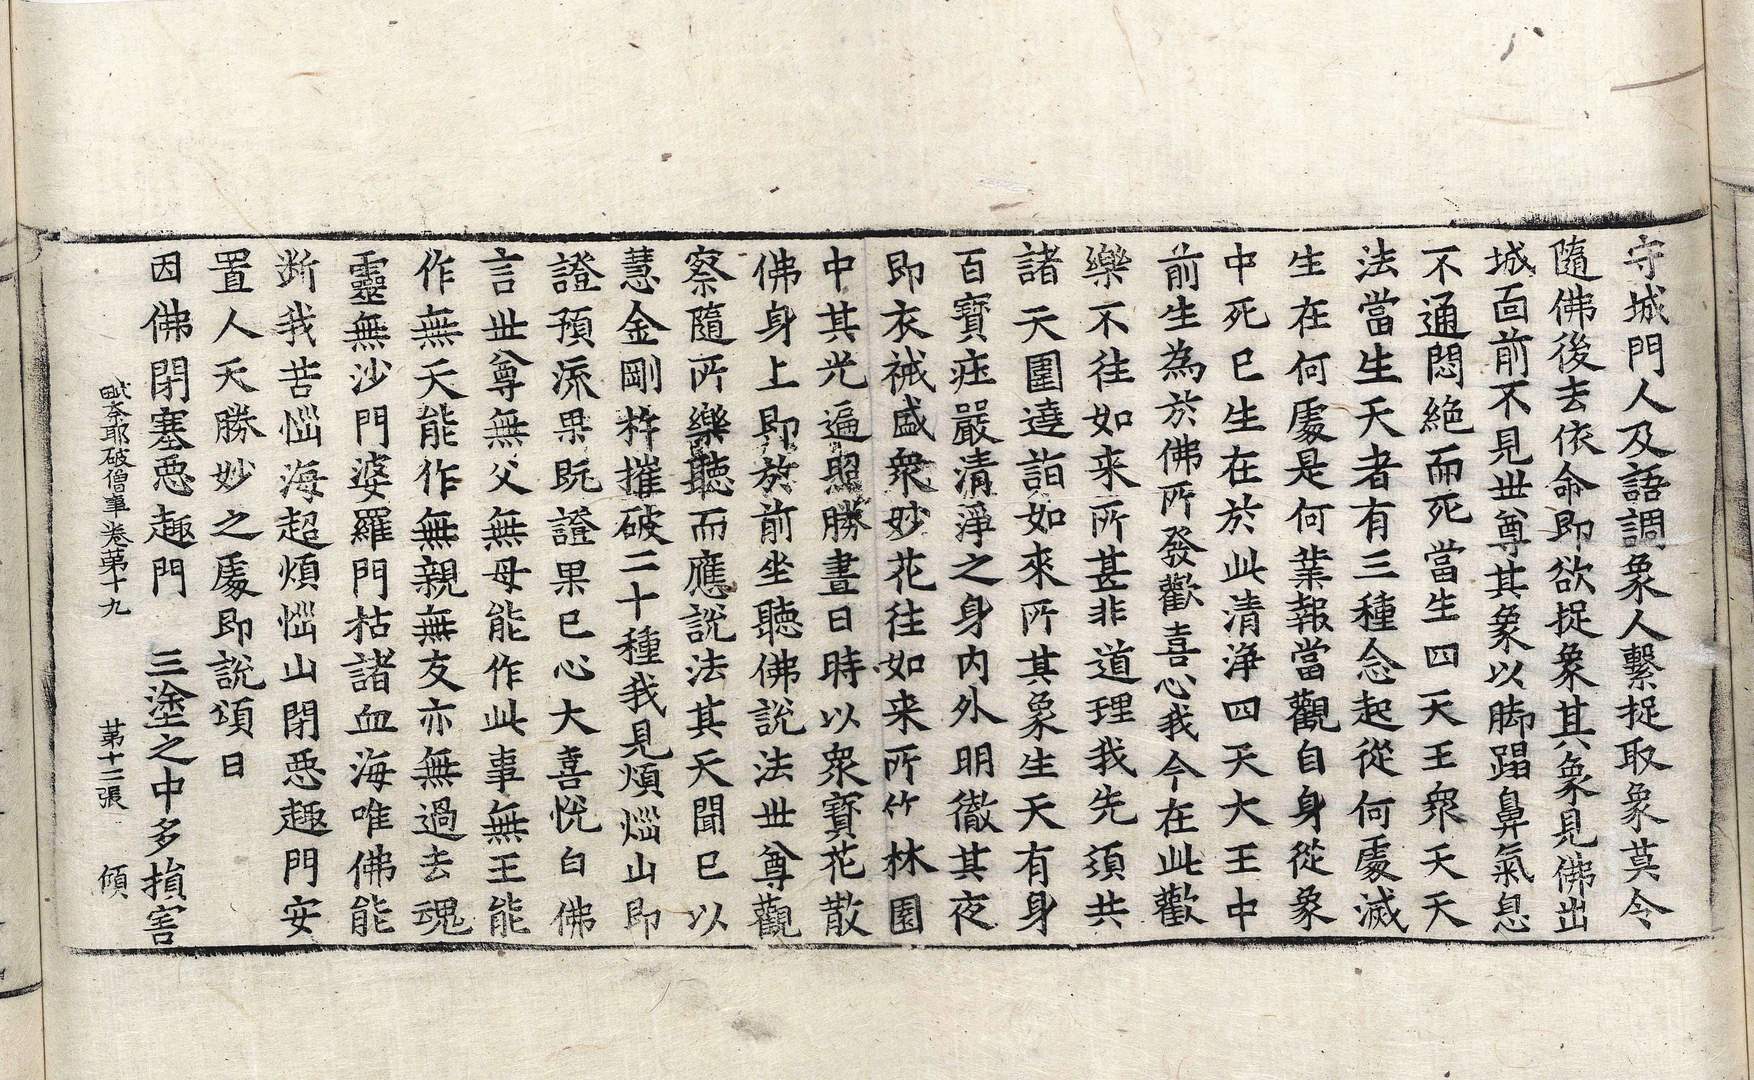 守城門人及語調象人繫捉取象莫令
隨佛後去依命即欲捉象其象見佛出
城面前不見世尊其象以脚蹋鼻氣息
不通悶絶而死當生四天王衆天天
法當生天者有三種念起從何處滅
生在何處是何業報當觀自身從象
中死已生在於此清淨四天大王中
前生為於佛所發歡喜心我今在此歡
樂不往如来所甚非道理我先須共
諸天圍遶詣如來所其象生天有身
百寶莊嚴清淨之身內外明徹其夜
即衣裓盛衆妙花往如来所竹林園
中其光遍照勝晝日時以衆寶花散
佛身上即於前坐聽佛說法世尊觀
察隨所樂聽而應說法其天聞已以
慧金剛杵摧破二十種我見煩惱山即
證預流果既證果已心大喜悅白佛
言世尊無父無母能作此事無王能
作無天能作無親無友亦無過去魂
靈無沙門婆羅門枯諸血海唯佛能
断我苦惱海超煩惱山閉惡趣門安
置人天勝妙之處即說頌曰
因佛閉塞惡趣門　三塗之中多損害
毗奈耶破僧事卷第十九　第十二張　傾